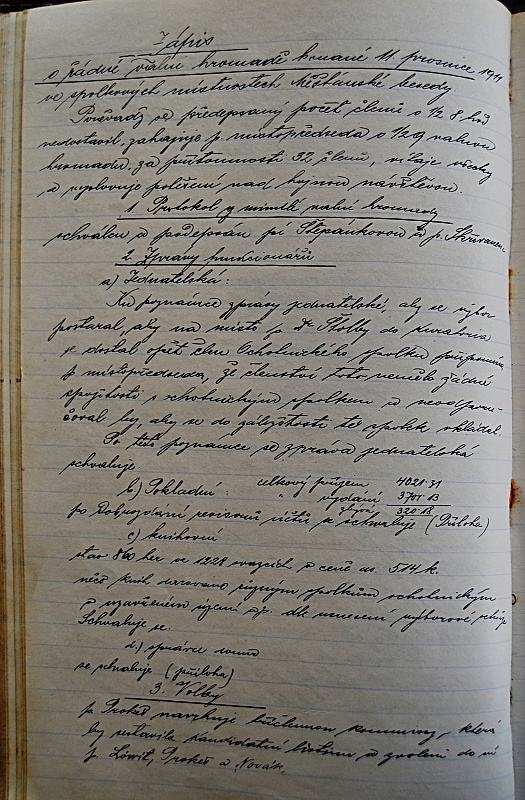 Zápis
o řádné valné hromadě konané 11 prosince 1911
ve spolkových místnostech Měšťanské besedy
Poněvadž se předepsaný počet členů o ½ 8 hod
nedostavil, zahajuje p. místopředseda o ½ 9 valnou
hromadu, za přítomnosti 32 členů, vítá všechny
a vyslovuje potěšení nad hojnou návštěvou.
1. Protokol z minulé valné hromady
schválen a podepsán pí Štěpánkovou a p. Skřivanem.
2. Zprávy funkcionářů
a) Jednatelská:
Ku poznámce zprávy jednatelské, aby se výbor
postaral, aby na místo p. Dr Stolby do kuratoria
se dostal opět člen Ochotnického spolku připomíná
p. místopředseda, že členství toto nemělo žádné
spojitosti s ochotnickým spolkem a neodporu-
čoval by, aby se do záležitosti té spolek vkládal.
Po této poznámce se zpráva jednatelská
schvaluje.
b) Pokladní: celkový příjem 4021·31
" vydání 3701·13
zbývá 320·18
po zodpovídání revisorů účtů se schvaluje (Příloha)
c) knihovní
stav 860 her ve 1228 svazcích v ceně as. 514 k.
něco knih darováno různým spolkům ochotnickým
v uzavřeném území
Schvaluje se.
d.) správce domu
se schvaluje (příloha)
3. Volby
p. Prokeš navrhuje tříčlennou komisi, která
by sestavila kandidátní listinu a zvoleni do ní
p. Löwit, Prokeš a Novák.